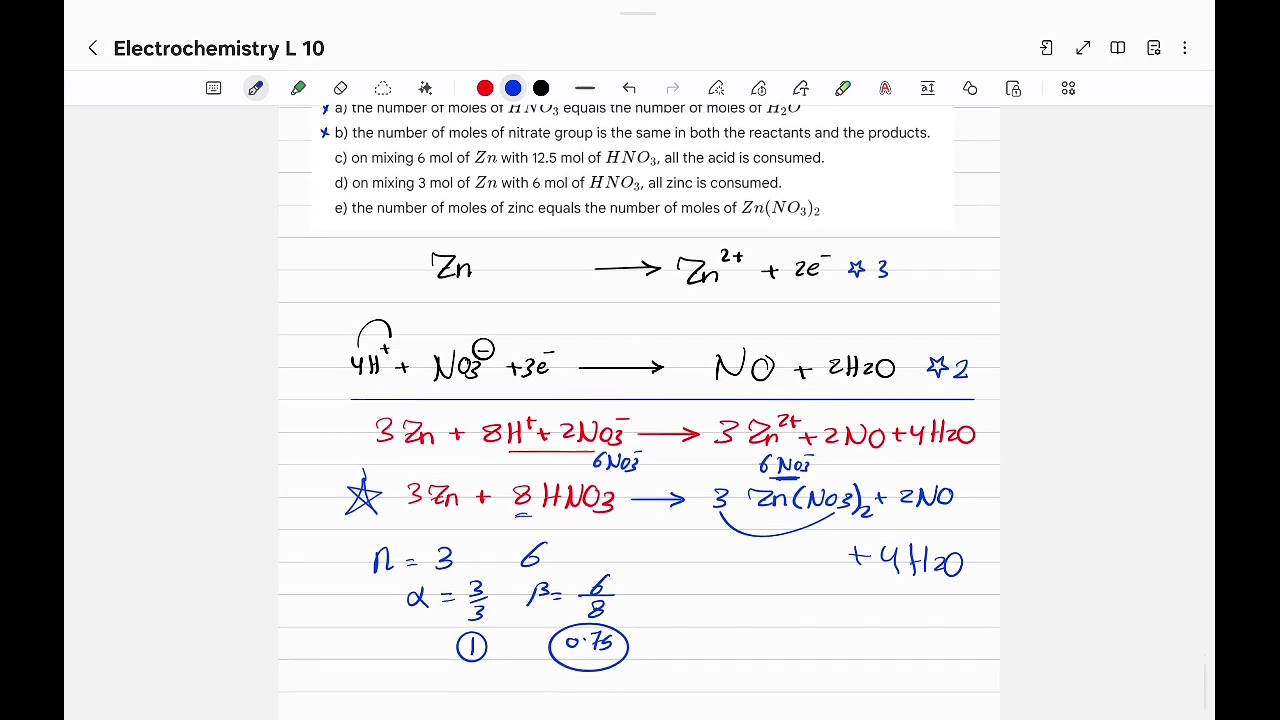 Electrochemistry L 10
a) the number of moles of HNO₃ equals the number of moles of H₂O
b) the number of moles of nitrate group is the same in both the reactants and the products.
c) on mixing 6 mol of Zn with 12.5 mol of HNO₃, all the acid is consumed.
d) on mixing 3 mol of Zn with 6 mol of HNO₃, all zinc is consumed.
e) the number of moles of zinc equals the number of moles of Zn(NO₃)₂
Zn ⟶ Zn²⁺ + 2e⁻ ☆ 3
4H⁺ + NO₃⁻ + 3e⁻ ⟶ NO + 2H2O ☆ 2
3Zn + 8H⁺ + 2NO₃⁻ ⟶ 3 Zn²⁺ + 2NO + 4H2O
6NO₃⁻ 6NO₃⁻
☆ 3Zn + 8HNO3 ⟶ 3 Zn(NO3)₂ + 2NO
+ 4H2O
n = 3 6
α = 3/3 β = 6/8
1 0.75